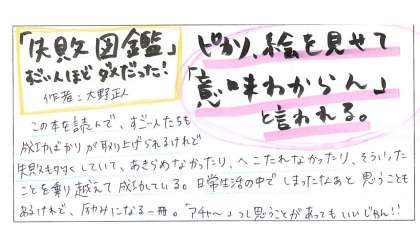 「失敗図鑑」
すごい人ほどダメだった!
作者:大野正人
ピカソ、絵を見せて
「意味わからん」
と言われる。
この本を読んで、すごい人たちも
成功ばかりが取り上げられるけれど
失敗も多くしていて、あきらめなかったり、へこたれなかったり、そういった
ことを乗り越えて成功している。日常生活の中でしまったなあと思うことも
あるけれど、励みになる一冊。「アチャ〜」って思うことがあってもいいじゃん!!